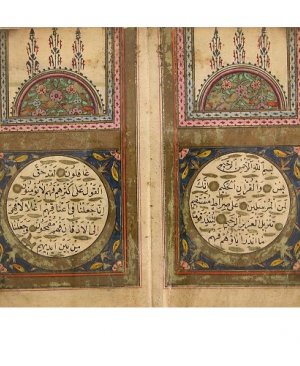 بسم الله الرحمن الرحيم
يس والقرآن الحكيم إنك
لمن المرسلين على صراط مستقيم
تنزيل العزيز الرحيم لتنذر
قوما ما أنذر آباؤهم فهم
غافلون لقد حق
القول على أكثرهم فهم لا يؤمنون
إنا جعلنا في أعناقهم أغلالا فهي
إلى الأذقان فهم مقمحون وجعلنا
من بين أيديهم